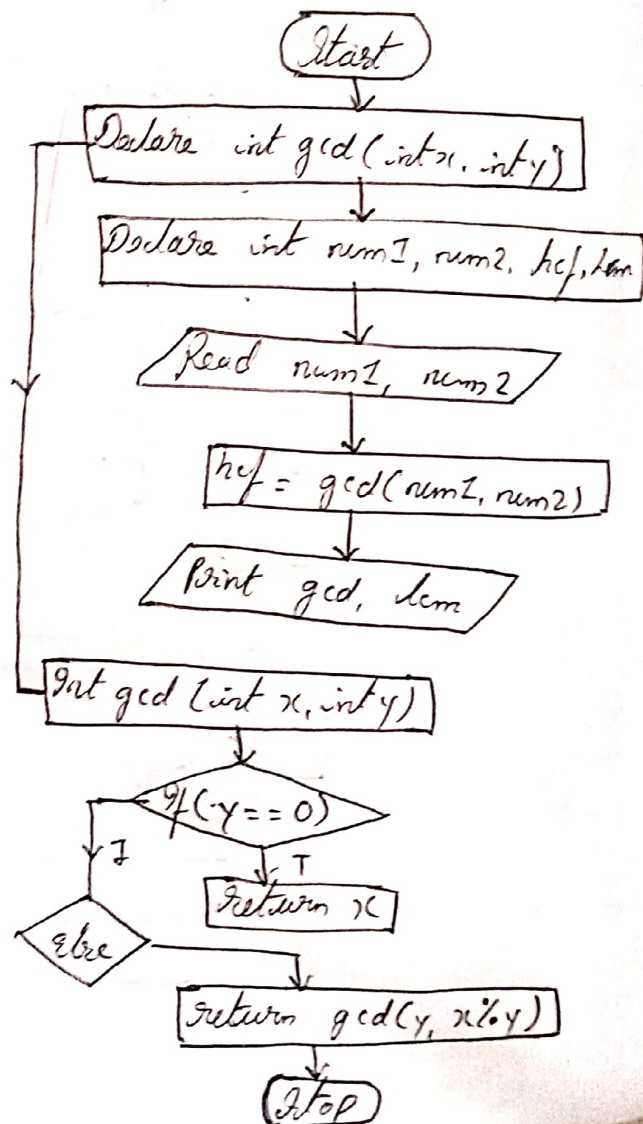 Start
Declare int gcd(int x, int y)
Declare int num1, num2, hcf, lcm
Read num1, num2
hcf = gcd(num1, num2)
Print gcd, lcm
Int gcd (int x, int y)
If (y == 0)
F
T
return x
else
return gcd(y, x%y)
Stop